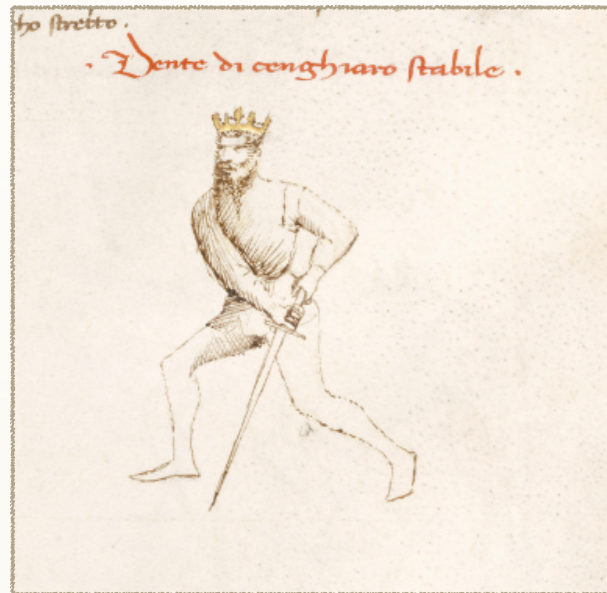 ho stretto.
. Dente di cenghiaro stabile .